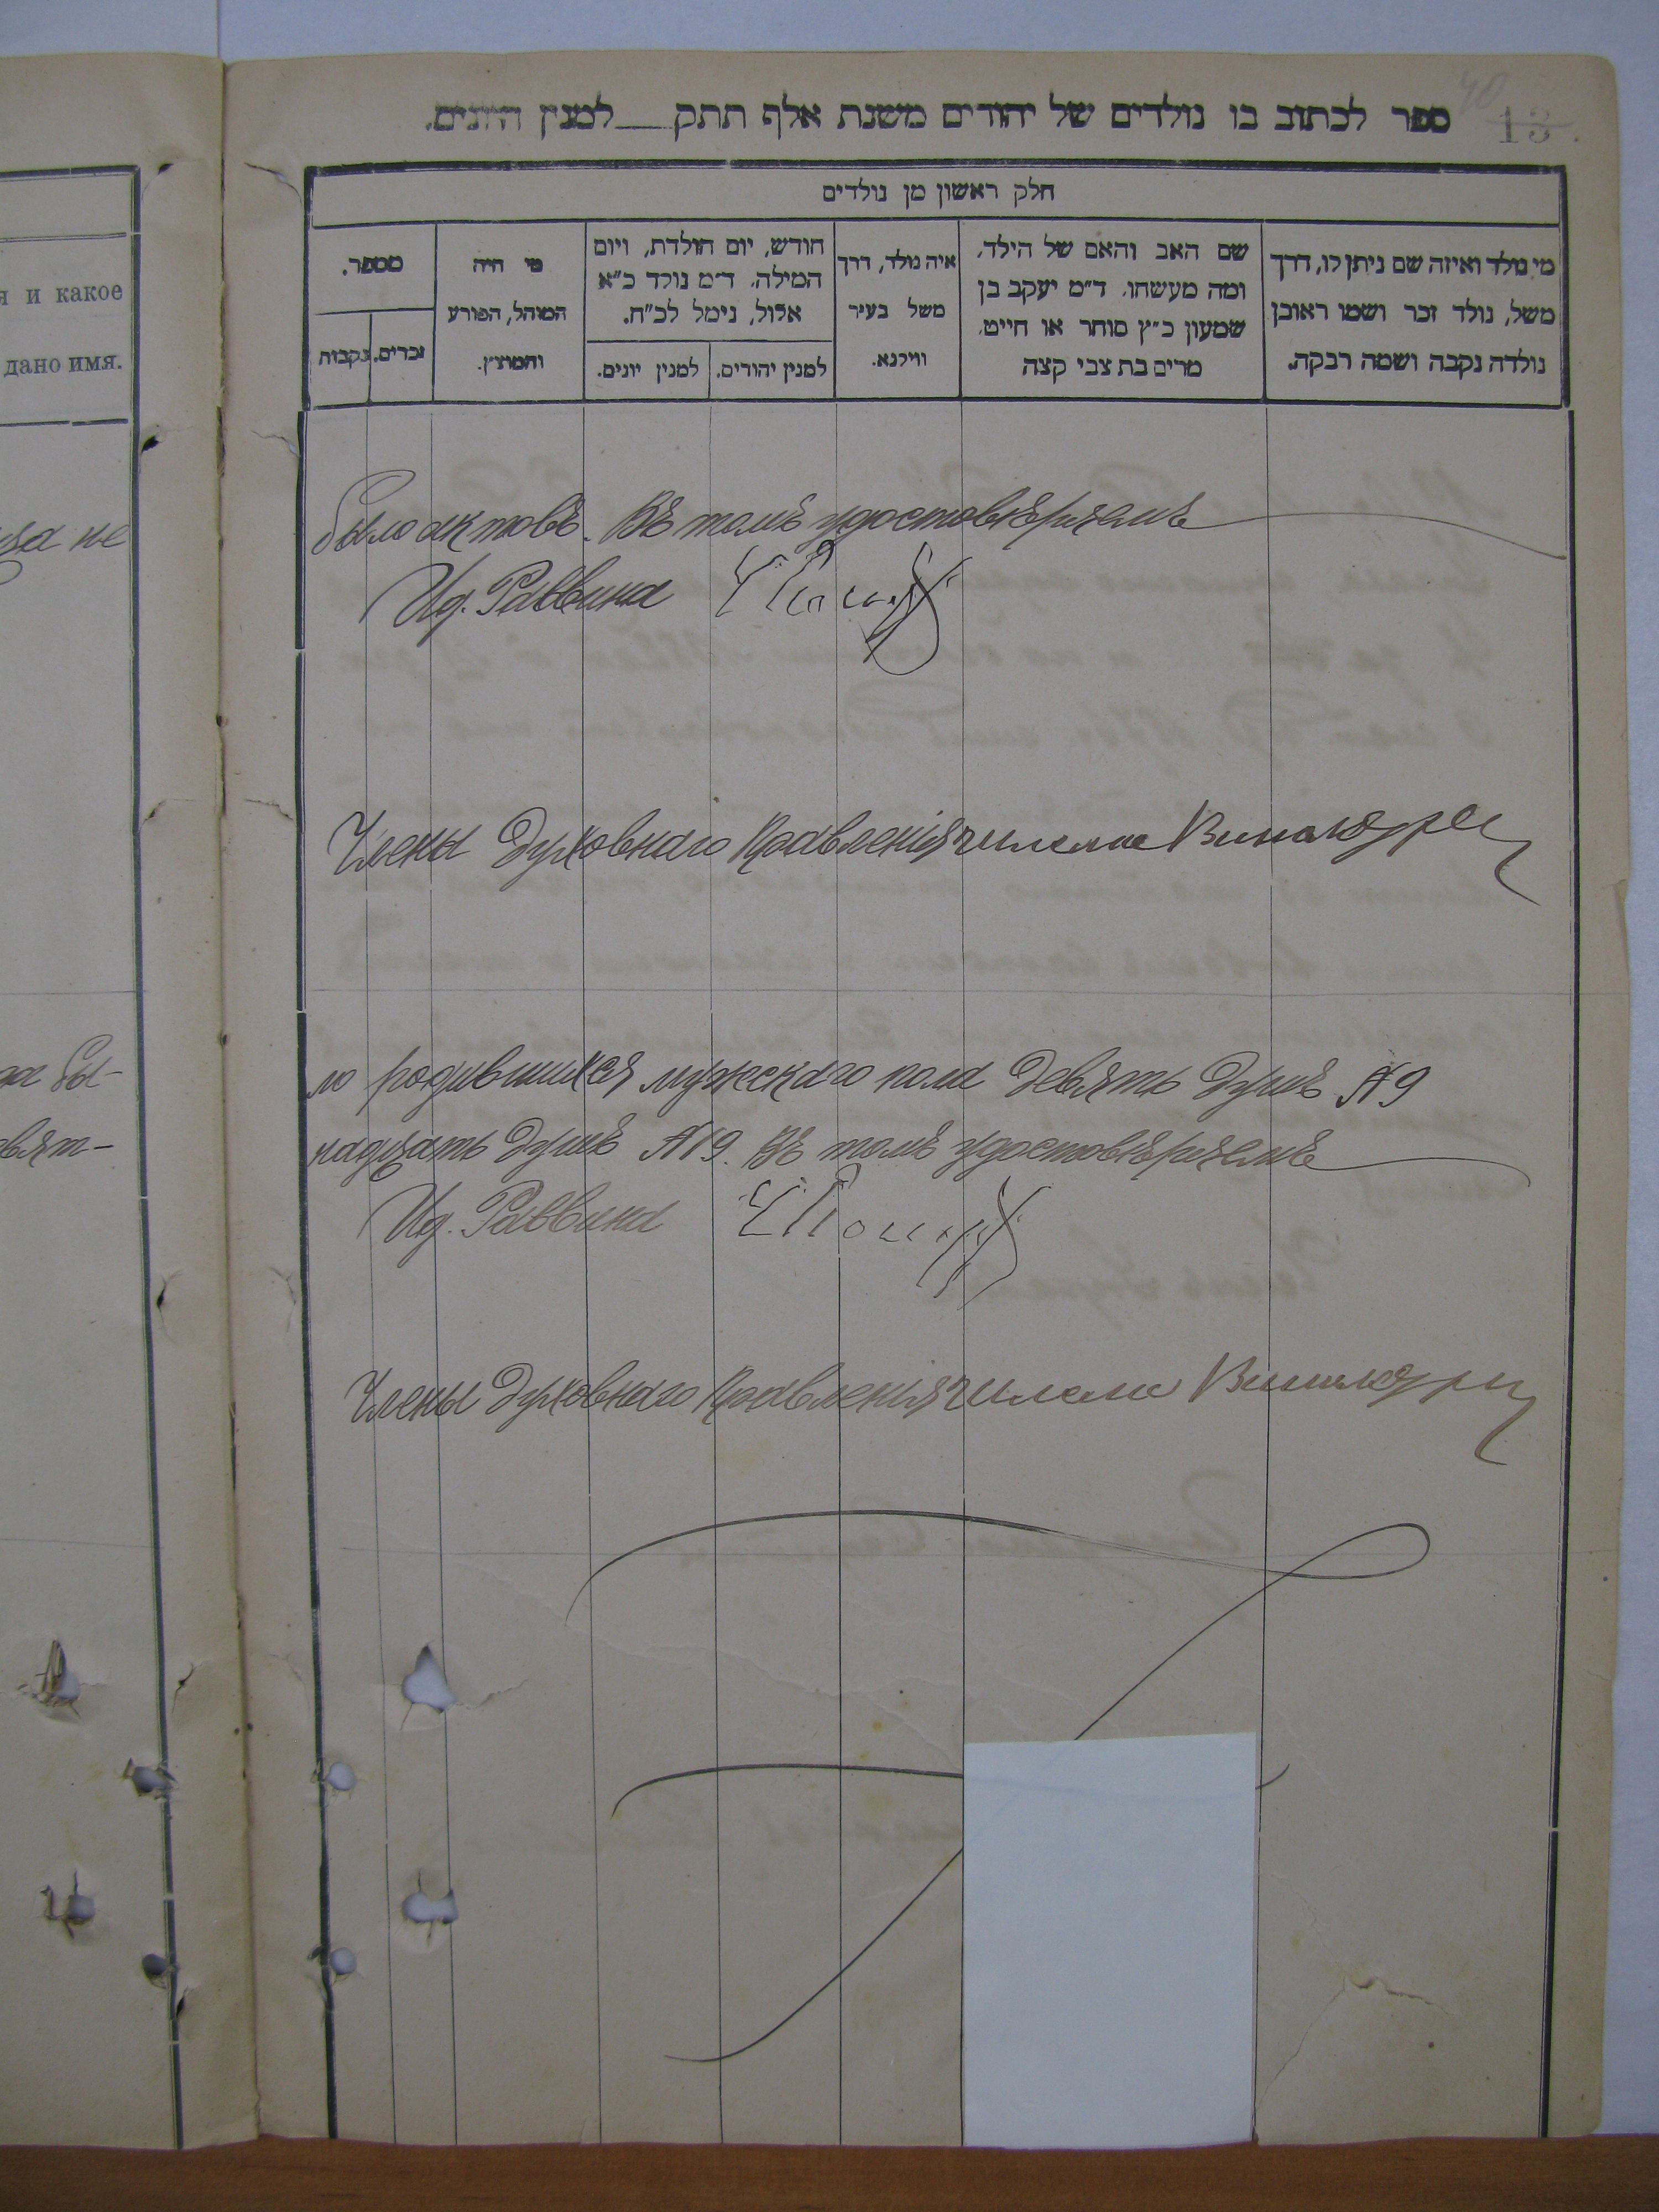 40
13
ספר לכתוב בו נולדים של יהודים משנת אלף תתק למנין היונים.
חלק ראשון מן נולדים
מי נולד ואיזה שם ניתן לו, דרך
משל, נולד זכר ושמו ראובן
נולדה נקבה ושמה רבקה.
שם האב והאם של הילד,
ומה מעשהו. ד״מ יעקב בן
שמעון כ״ץ סוחר או חייט,
מרים בת צבי קצה
איה נולד, דרך
משל בעיר
ווילנא.
חודש, יום הולדת, ויום
המילה. ד״מ נולד כ״א
אלול, נימל לכ״ח.
למנין יהודים.
למנין יונים.
מי היה
המוהל, הפורע
והמוצץ.
מספר.
זכרים.
נקבות
я и какое
дано имя.
не
было актовъ. Въ томъ удостовѣряемъ
Ид. Раввина
Члены Духовнаго Правленія
бы-
вят-
ло родившихся мужскаго пола девять душъ №9
надцать душъ №19. Въ томъ удостовѣряемъ
Ид. Раввина
Члены Духовнаго Правленія